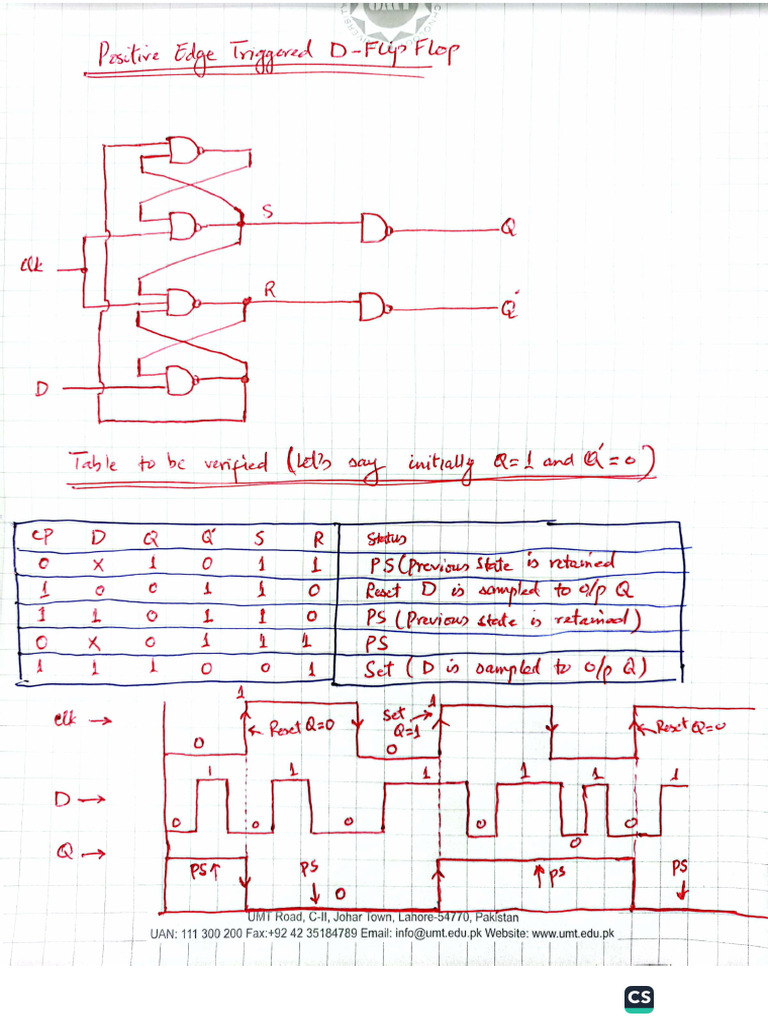 UMT
Positive Edge Triggered D-Flip Flop
S
Q
Clk
R
Q'
D
Table to be verified (Let's say initially Q=1 and Q'=0)
CP D Q Q' S R Status
0 X 1 0 1 1 PS (Previous state is retained
1 0 0 1 1 0 Reset D is sampled to o/p Q
1 1 0 1 1 0 PS (Previous state is retained)
0 X 0 1 1 1 PS
1 1 1 0 0 1 Set (D is sampled to o/p Q)
Clk → 0 1 Reset Q=0 Set Q=1 0 1 Reset Q=0
D → 0 1 0 1 0 1 0 1 0 1 0 1
Q → PS↑ PS↓ 0 ↑PS PS↓
UMT Road, C-II, Johar Town, Lahore-54770, Pakistan
UAN: 111 300 200 Fax:+92 42 35184789 Email: info@umt.edu.pk Website: www.umt.edu.pk
CS